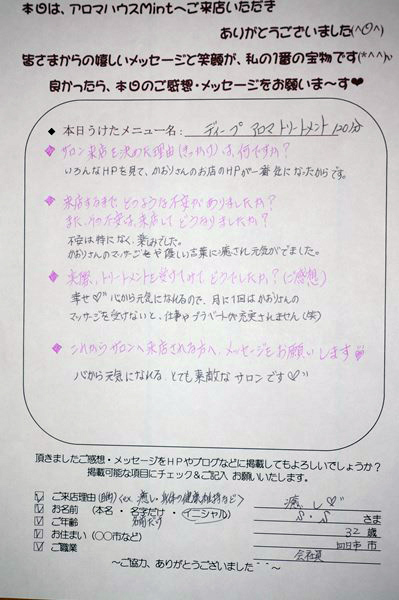 本日は、アロマハウスMintへご来店いただき
ありがとうございました(^O^)
皆さまからの嬉しいメッセージと笑顔が、私の1番の宝物です(*^^*)
良かったら、本日のご感想・メッセージをお願いま～す❤
◆ 本日うけたメニュー名： ディープ アロマ トリートメント 120分
◆ サロン来店を決めた理由(きっかけ)は、何ですか?
いろんなHPを見て、かおりさんのお店のHPが一番気になったからです。
◆ 来店するまで、どのような不安がありましたか?
また、その不安は、来店してどうなりましたか?
不安は特になく、楽しみでした。
かおりさんのマッサージや優しい言葉に癒され元気がでました。
◆ 実際、トリートメントを受けてみてどうでしたか?(ご感想)
幸せ♡ 心から元気になれるので、月に1回はかおりさんの
マッサージを受けないと、仕事やプライベートが充実されません(笑)
◆ これからサロンへ来店される方へ、メッセージをお願いします♥
心から元気になれる とても素敵な サロンです♡
頂きましたご感想・メッセージをHPやブログなどに掲載してもよろしいでしょうか?
掲載可能な項目にチェック&ご記入 お願いいたします。
☑ ご来店理由(目的) <ex. 癒し・身体の健康維持など> 癒し♡
☑ お名前 (本名・名字だけ・イニシャル) S・S さま
☑ ご年齢 32 歳
☑ お住まい (〇〇市など) 四日市 市
☑ ご職業 会社員
～ご協力、ありがとうございました～